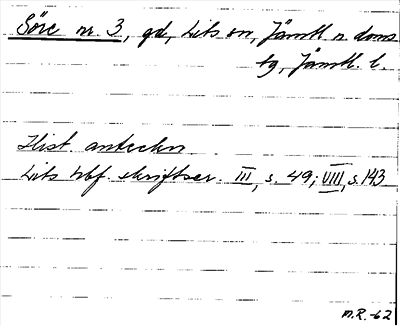 Söre nr. 3, gd, Lits sn, Jämtl. n. doms
tg, Jämtl. l.
Hist. anteckn
Lits hbf. skriftser. III, s. 49; VIII, s. 143
M.R.-62